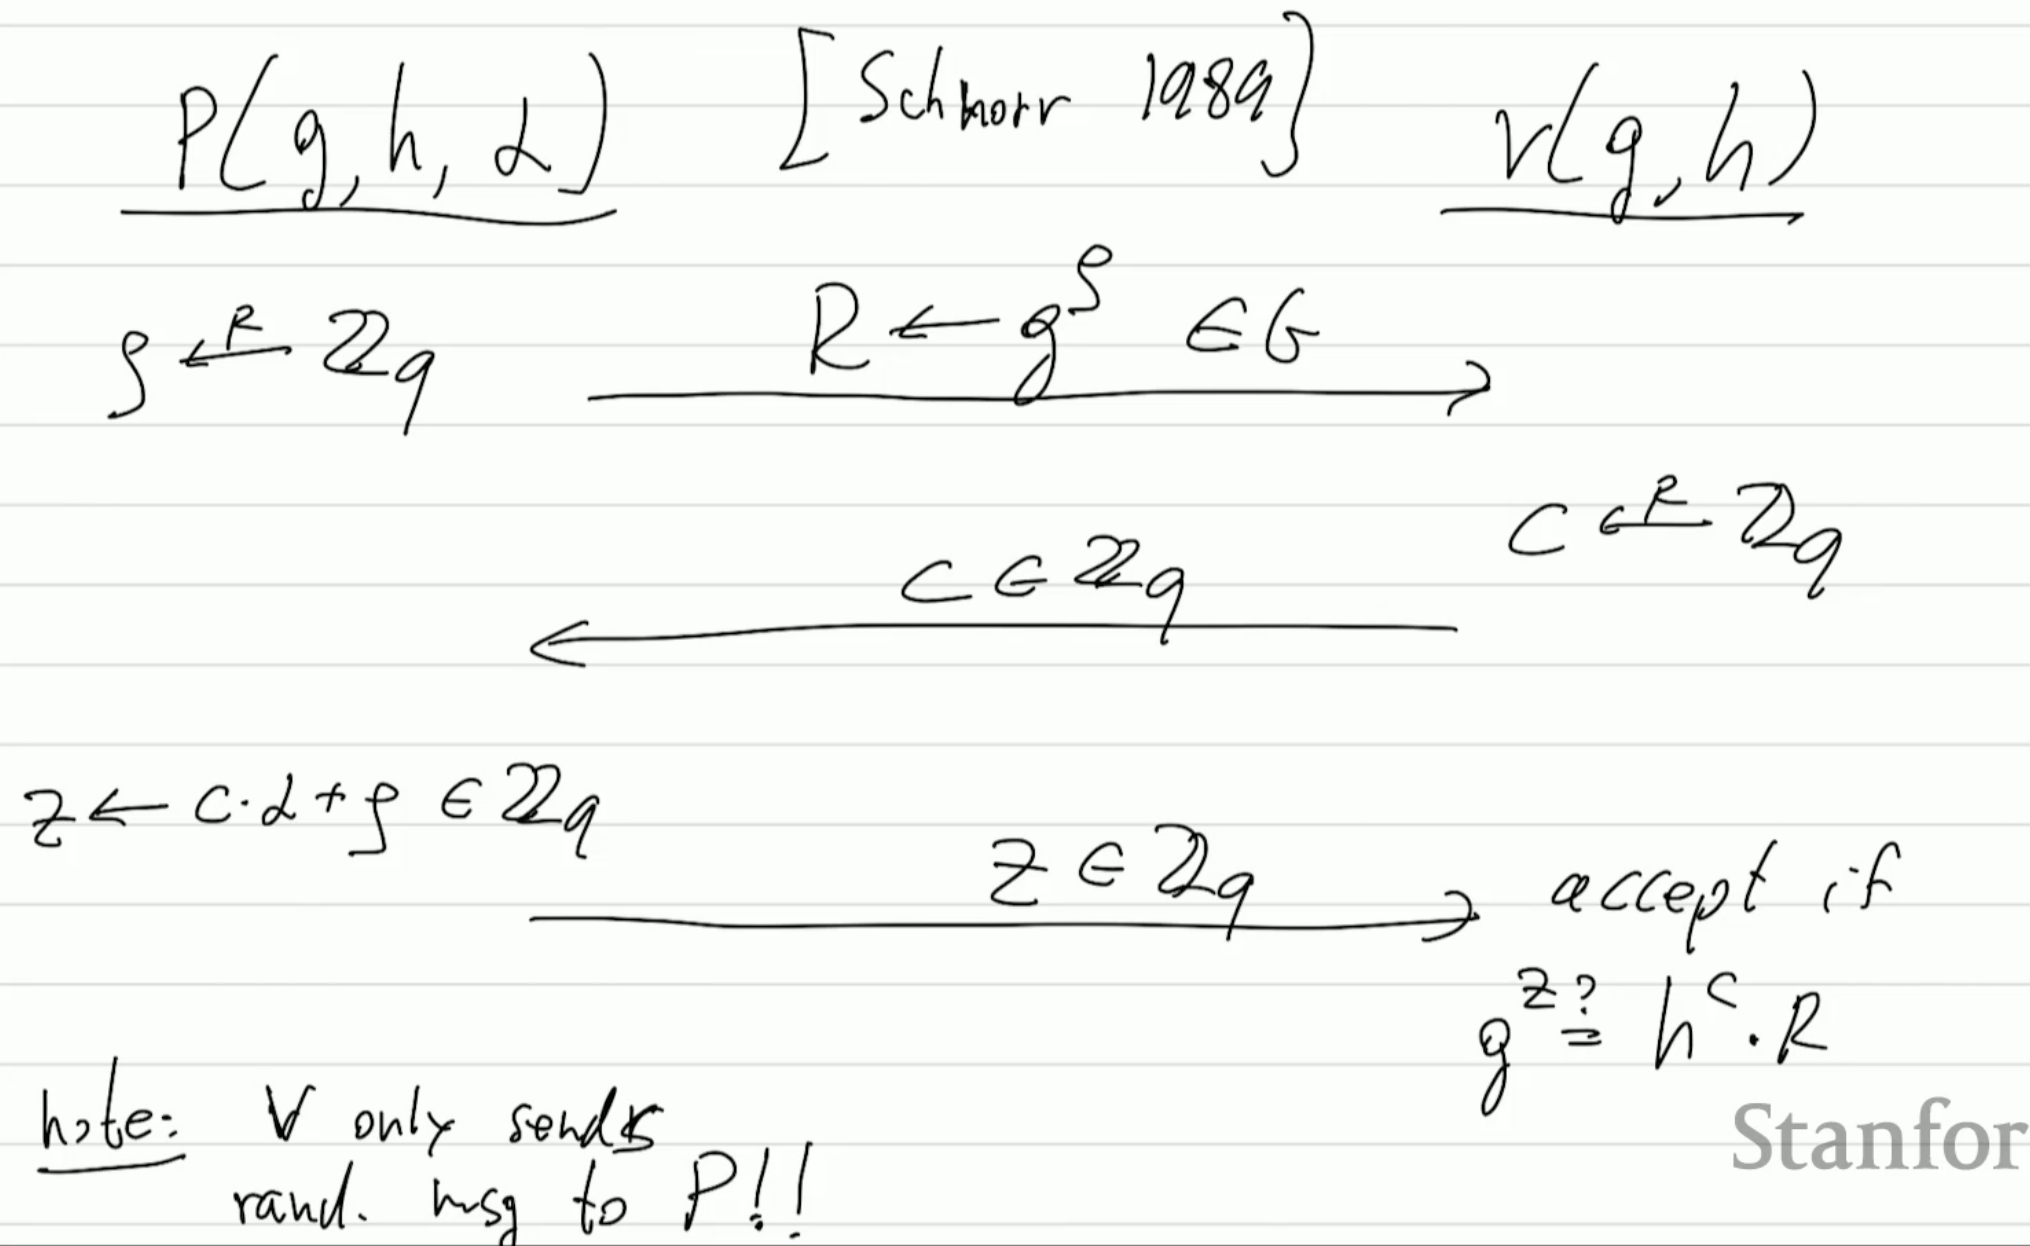 P(g,h,α) [Schnorr 1989] V(g,h)
ρ ←R ℤq R ← g^ρ ∈ G
c ←R ℤq
c ∈ ℤq
z ← c·α+ρ ∈ ℤq
z ∈ ℤq accept if
g^z ≟ h^c · R
note: V only sends
rand. msg to P!!
Stanfor